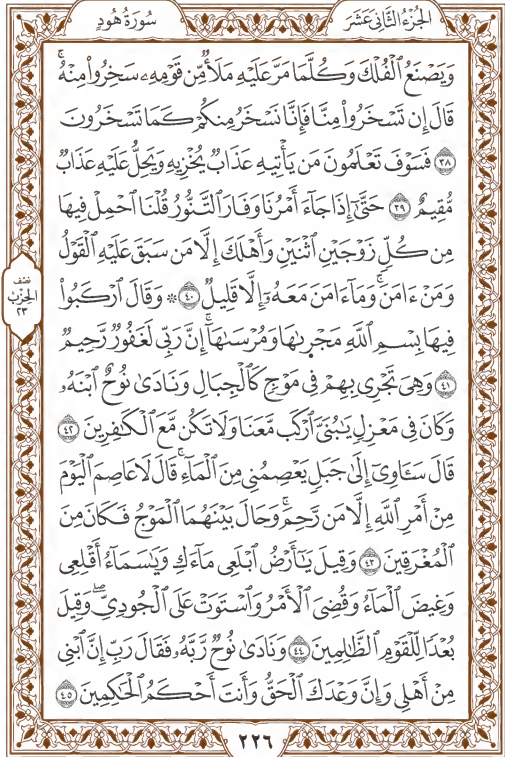 الجُزْءُ الثَّانِي عَشَرَ
سُورَةُ هُودٍ
وَيَصْنَعُ ٱلْفُلْكَ وَكُلَّمَا مَرَّ عَلَيْهِ مَلَأٌ مِّن قَوْمِهِۦ سَخِرُوا۟ مِنْهُ ۚ
قَالَ إِن تَسْخَرُوا۟ مِنَّا فَإِنَّا نَسْخَرُ مِنكُمْ كَمَا تَسْخَرُونَ
٣٨ فَسَوْفَ تَعْلَمُونَ مَن يَأْتِيهِ عَذَابٌ يُخْزِيهِ وَيَحِلُّ عَلَيْهِ عَذَابٌ
مُّقِيمٌ ٣٩ حَتَّىٰٓ إِذَا جَآءَ أَمْرُنَا وَفَارَ ٱلتَّنُّورُ قُلْنَا ٱحْمِلْ فِيهَا
مِن كُلٍّ زَوْجَيْنِ ٱثْنَيْنِ وَأَهْلَكَ إِلَّا مَن سَبَقَ عَلَيْهِ ٱلْقَوْلُ
وَمَنْ ءَامَنَ ۚ وَمَآ ءَامَنَ مَعَهُۥٓ إِلَّا قَلِيلٌ ٤٠ ۞ وَقَالَ ٱرْكَبُوا۟
فِيهَا بِسْمِ ٱللَّهِ مَجْر۪ىٰهَا وَمُرْسَىٰهَآ ۚ إِنَّ رَبِّى لَغَفُورٌ رَّحِيمٌ
٤١ وَهِىَ تَجْرِى بِهِمْ فِى مَوْجٍ كَٱلْجِبَالِ وَنَادَىٰ نُوحٌ ٱبْنَهُۥ
وَكَانَ فِى مَعْزِلٍ يَٰبُنَىَّ ٱرْكَب مَّعَنَا وَلَا تَكُن مَّعَ ٱلْكَٰفِرِينَ ٤٢
قَالَ سَـَٔاوِىٓ إِلَىٰ جَبَلٍ يَعْصِمُنِى مِنَ ٱلْمَآءِ ۚ قَالَ لَا عَاصِمَ ٱلْيَوْمَ
مِنْ أَمْرِ ٱللَّهِ إِلَّا مَن رَّحِمَ ۚ وَحَالَ بَيْنَهُمَا ٱلْمَوْجُ فَكَانَ مِنَ
ٱلْمُغْرَقِينَ ٤٣ وَقِيلَ يَٰٓأَرْضُ ٱبْلَعِى مَآءَكِ وَيَٰسَمَآءُ أَقْلِعِى
وَغِيضَ ٱلْمَآءُ وَقُضِىَ ٱلْأَمْرُ وَٱسْتَوَتْ عَلَى ٱلْجُودِىِّ ۖ وَقِيلَ
بُعْدًا لِّلْقَوْمِ ٱلظَّٰلِمِينَ ٤٤ وَنَادَىٰ نُوحٌ رَّبَّهُۥ فَقَالَ رَبِّ إِنَّ ٱبْنِى
مِنْ أَهْلِى وَإِنَّ وَعْدَكَ ٱلْحَقُّ وَأَنتَ أَحْكَمُ ٱلْحَٰكِمِينَ ٤٥
نصف
الحزب
٢٣
٢٢٦